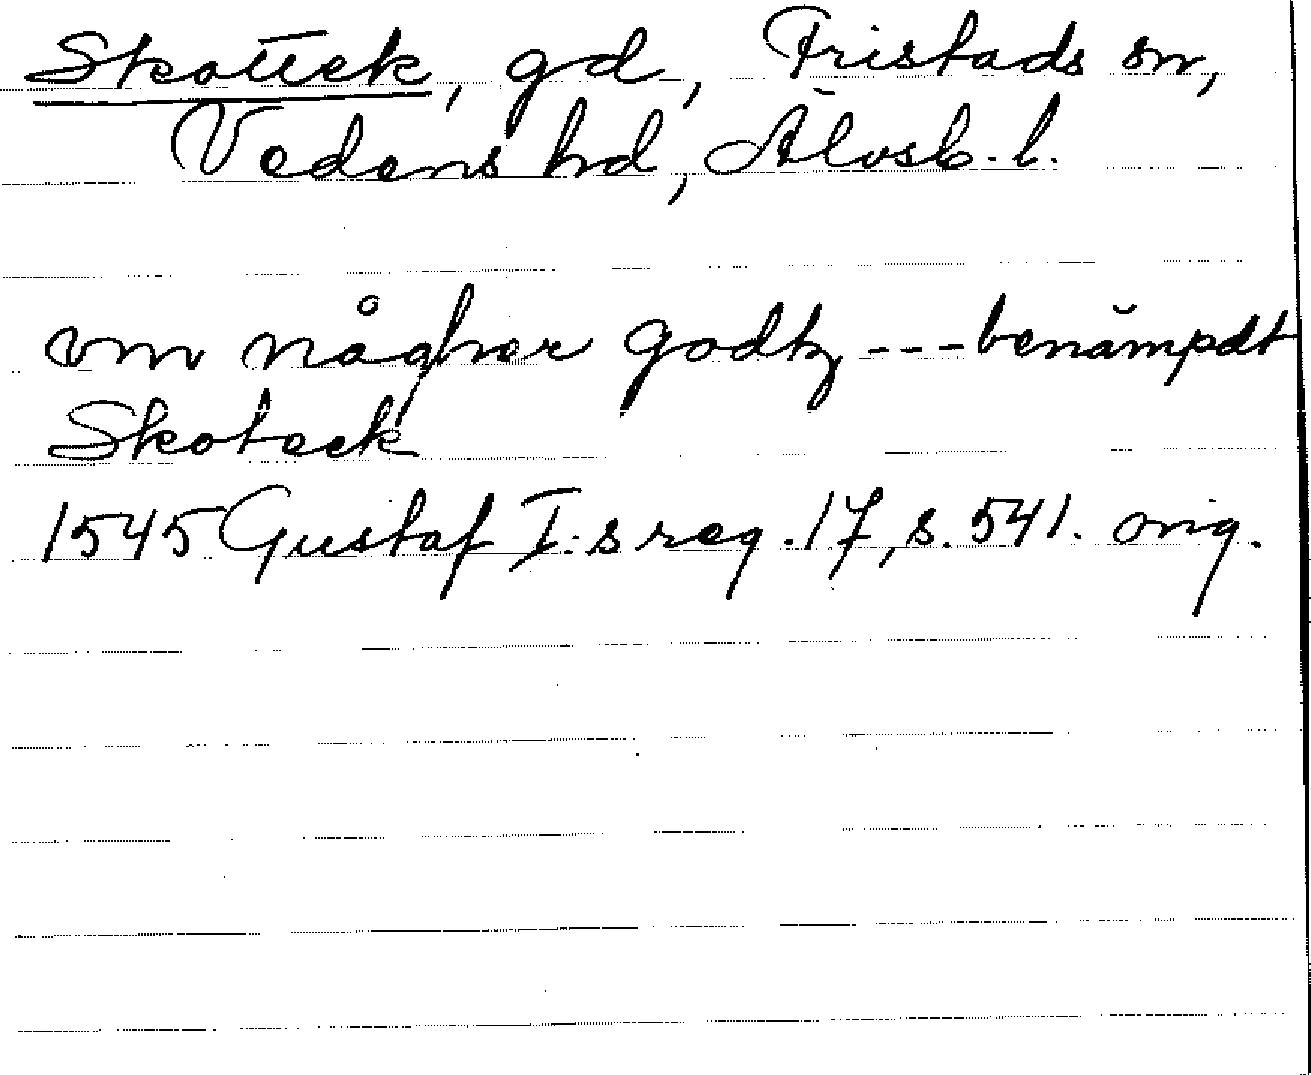 Skotteck, gd, Fristads sn,
Vedens hd, Älvsb. l.
om någher godtz --- benämpdt
Skoteck
1545 Gustaf I:s reg. 17, s. 541. orig.